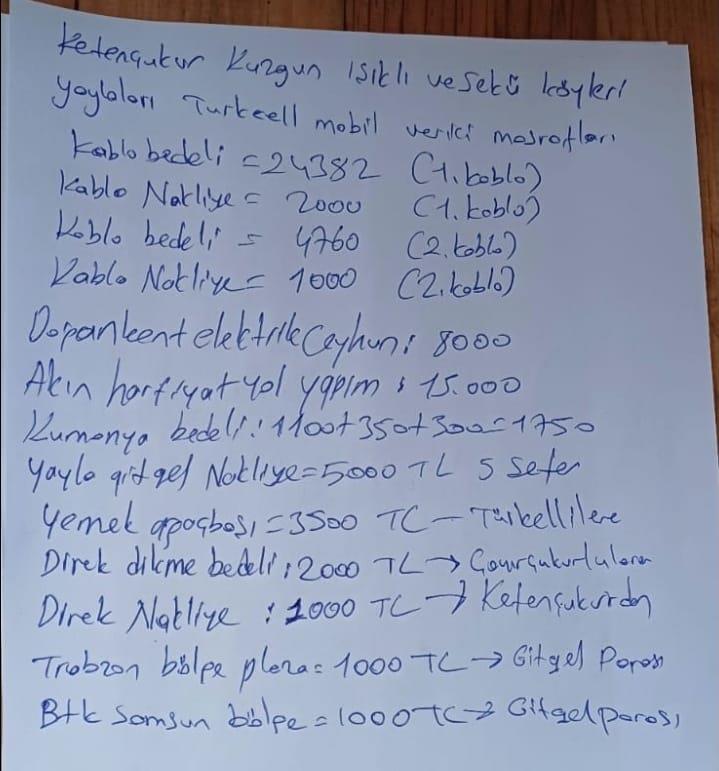 Ketençukur Kuzgun ışıklı ve Sekü köyleri
yaylaları Turkcell mobil verici masrafları
Kablo bedeli = 24382 (1. kablo)
Kablo Nakliye = 2000 (1. kablo)
Kablo bedeli = 4760 (2. kablo)
Kablo Nakliye = 1000 (2. kablo)
Doğankent elektrik Ceyhun: 8000
Akın harfiyat yol yapım : 15.000
Kumanya bedeli: 1100+350+300=1750
Yayla git gel Nakliye=5000 TL 5 Sefer
Yemek =3500 TL - Türkcellilere
Direk dikme bedeli : 2000 TL →
Direk Nakliye : 1000 TL → Ketençukurdan
Trabzon bölge plaza= 1000 TL → Gitgel Parası
Btk Samsun bölge = 1000 TL → Gitgel parası